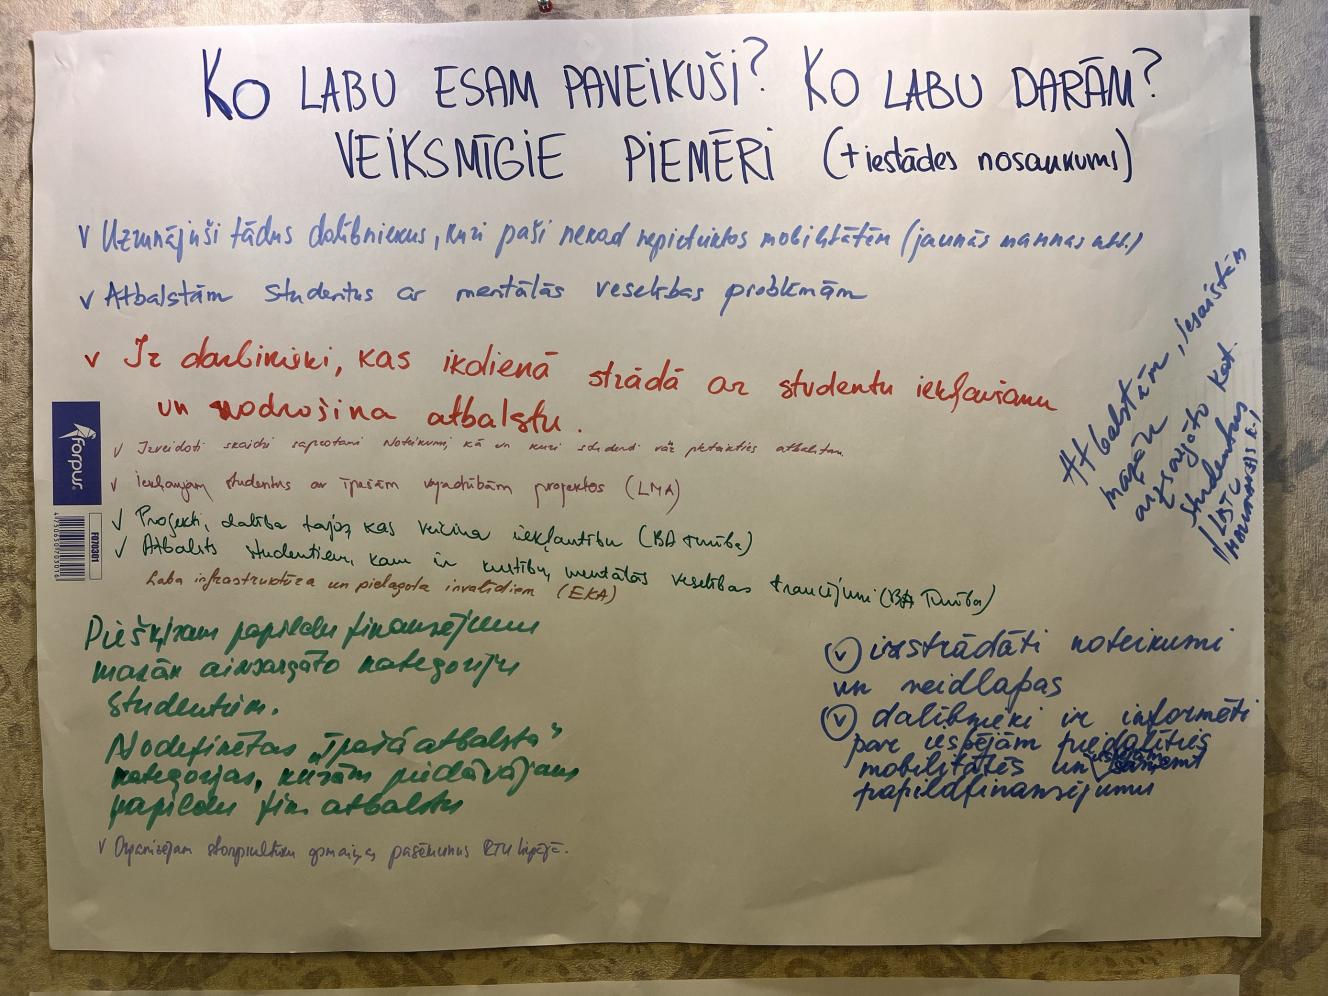 KO LABU ESAM PAVEIKUŠI? KO LABU DARĀM?
VEIKSMĪGIE PIEMĒRI (+ iestādes nosaukums)
v Uzrunājuši tādus dalībniekus, kuri paši nekad nepieteiktos mobilitātēm (jaunās māmiņas utt.)
v Atbalstām studentus ar mentālās veselības problēmām
v Ir darbinieki, kas ikdienā strādā ar studentu iekļaušanu
un nodrošina atbalstu.
v Izveidoti skaidri saprotami noteikumi, kā un kuri studenti var pieteikties atbalstam.
v Iekļaujam studentus ar īpašām vajadzībām projektos (LMA)
v Projekti, dalība tajos, kas veicina iekļautību (BA Turība)
v Atbalsts studentiem, kam ir kustību, mentālās veselības traucējumi (BA Turība)
Laba infrastruktūra un pielāgota invalīdiem (EKA)
Piešķiram papildu finansējumu
mazāk aizsargāto kategoriju
studentiem.
Nodefinētas "īpašā atbalsta"
kategorijas, kurām piedāvājam
papildu fin atbalstu
v Organizējam starpkultūru apmaiņas pasākumus RTU Liepājā.
Atbalstām, iesaistām
mazāk
aizsargāto kat.
studentus
v izstrādāti noteikumi
un veidlapas
v dalībnieki ir informēti
par iespējām piedalīties
mobilitātēs un saņemt
papildfinansējumu
forpus
FO70301